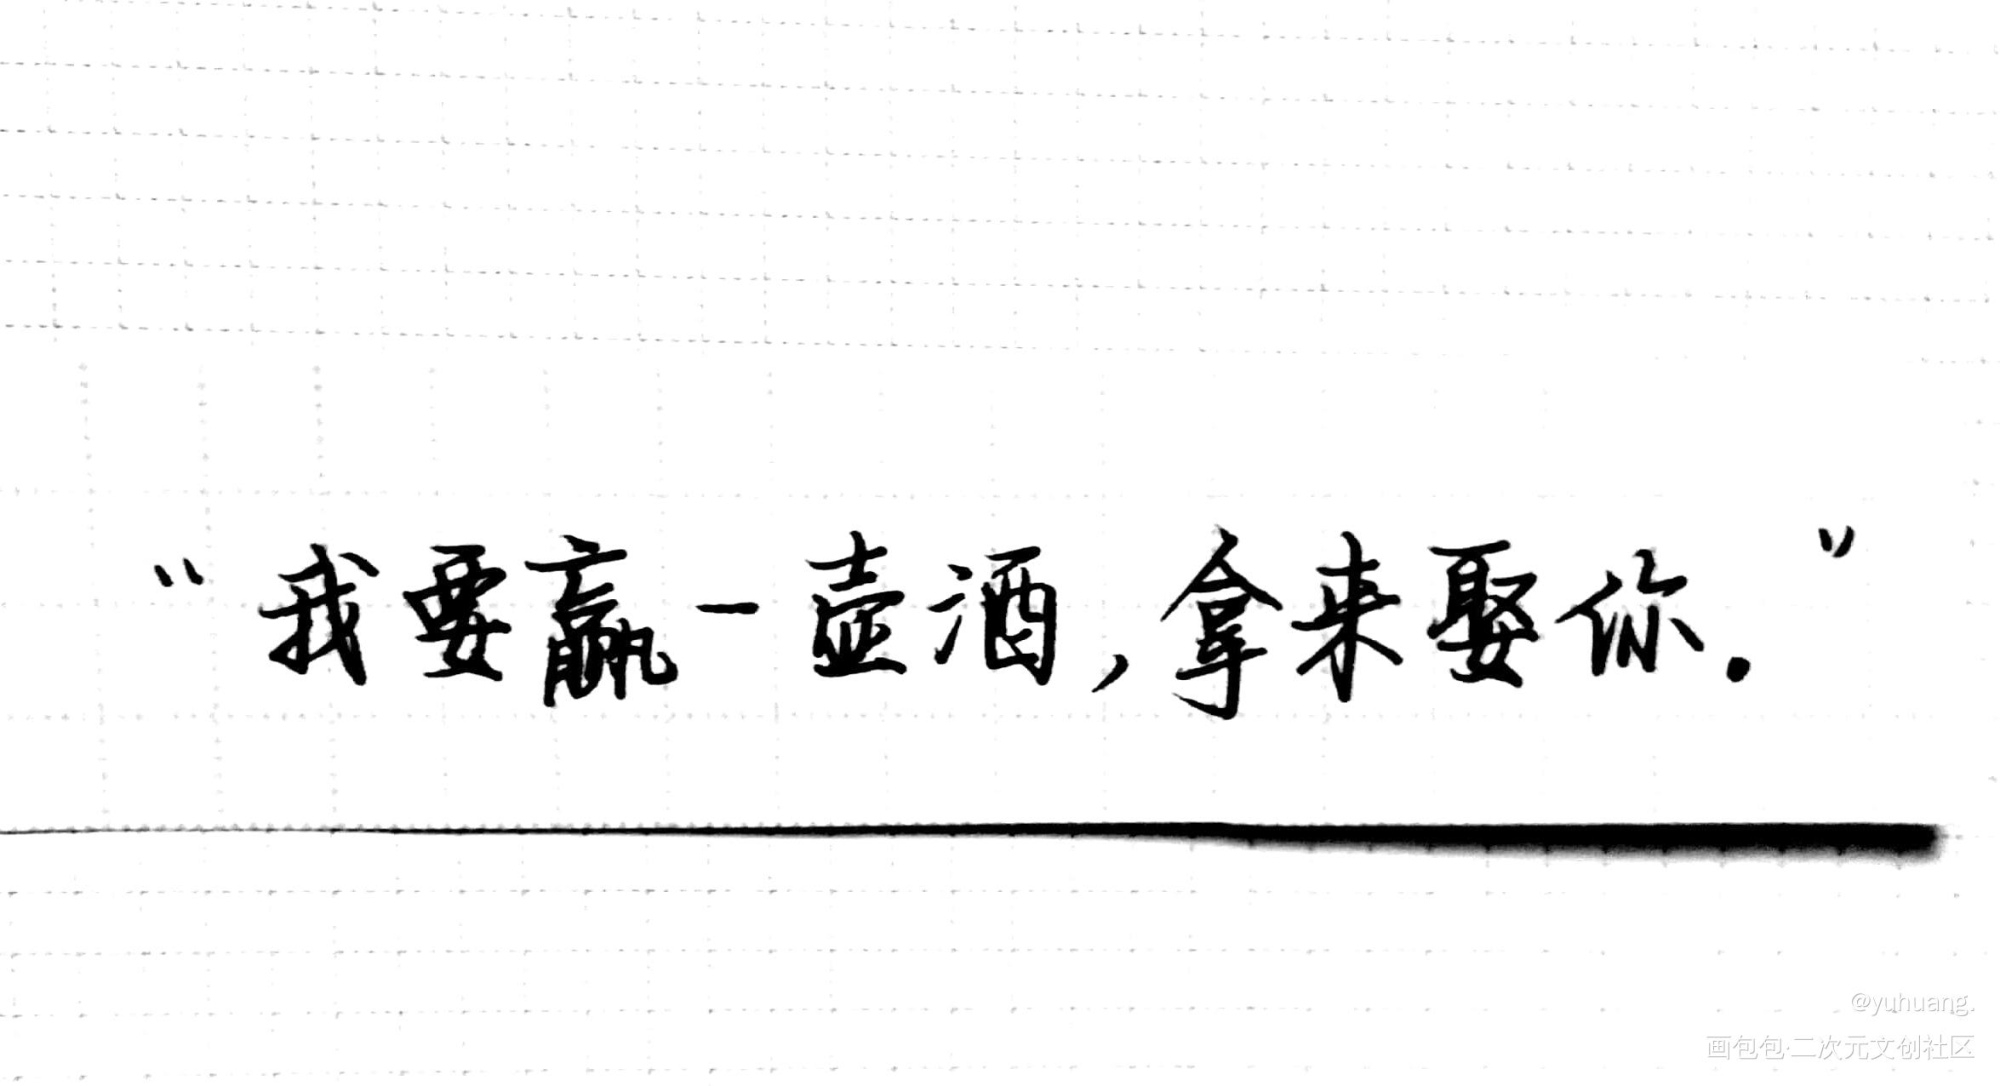 “我要赢一壶酒，拿来娶你.”
@yuhuang.
画包包·二次元文创社区